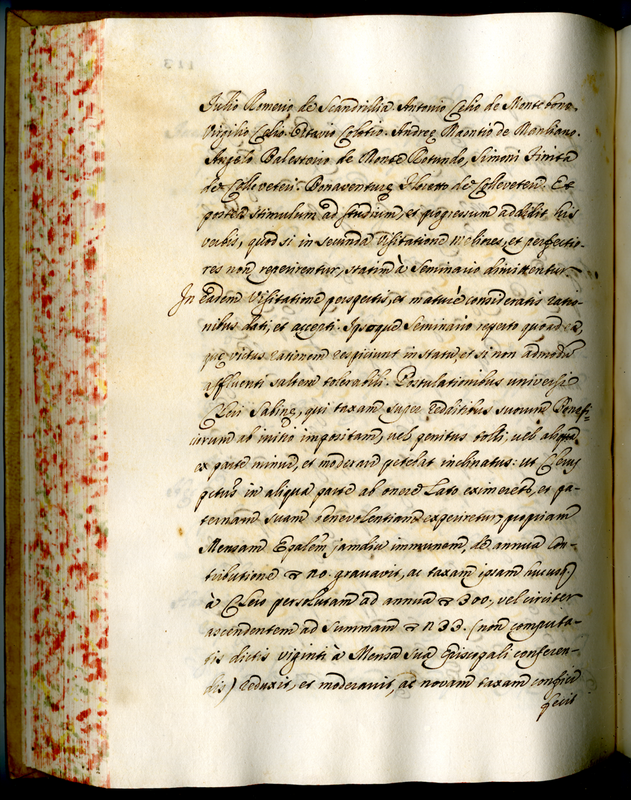 Julio Romerio de Scandrillia Antonio Celio de Montebono.
Virgilio Celio. Octavio Colotio. Andreę Mãntio de Mantiano.
Angelo Balestorio de Monte Rotundo, Simoni
de Colleveteri. Bonaventurę de Colleveteri. Et
postea stimulum ad studium, et progressum addidit his
verbis, quod si in secunda Visitatione meliores, et perfectio-
res non reperirentur, statim à Seminario dimittentur.
In eadem Visitatione perspectis, et maturè consideratis ratio-
nibus dati, et accepti. Ipsoque Seminario reperto quoad ea,
quę victus rationem respiciunt in statu, et si non admodũ
affluenti saltem tolerabili. Postulationibus universi
Cleri Sabinę, qui taxam super redditibus suorum Benefi-
ciorum ab initio impositam, vel penitus tolli, vel aliqua
ex parte minui, et moderari petebat inclinatus: ut Clerus
ipsius in aliqua parte ab onere lato eximeretur, et pa-
ternam suam benevolentiam experiretur, propriam
Mensam Epalem, jamdiu immunem, de annua con-
tributione 20. gravavit, ac taxam ipsam hucusq)
à Clero persolutam ad annua 300, vel circiter
ascendentem ad summam 133. (non computa-
tis dictis viginti à Mensa sua Episcopali conferen-
dis) reduxit, et moderavit, ac novam taxam confici
fecit